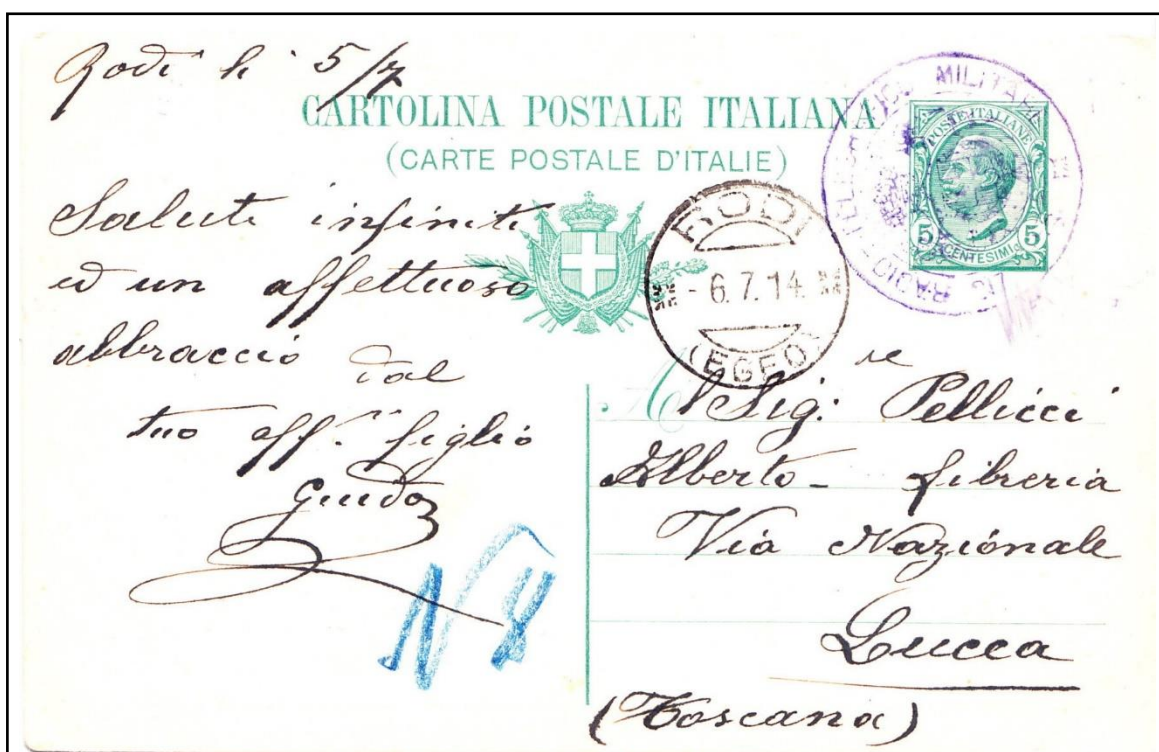 Rodi li 5/7
CARTOLINA POSTALE ITALIANA
(CARTE POSTALE D'ITALIE)
MILITARE
RADIO
POSTE ITALIANE
5 CENTESIMI 5
RODI
- 6.7.14.
(EGEO)
Saluti infiniti
ed un affettuoso
abbraccio dal
tuo aff.mo figlio
Guido
N 8
Al Sig: Pellicci
Alberto - Libreria
Via Nazionale
Lucca
(Toscana)